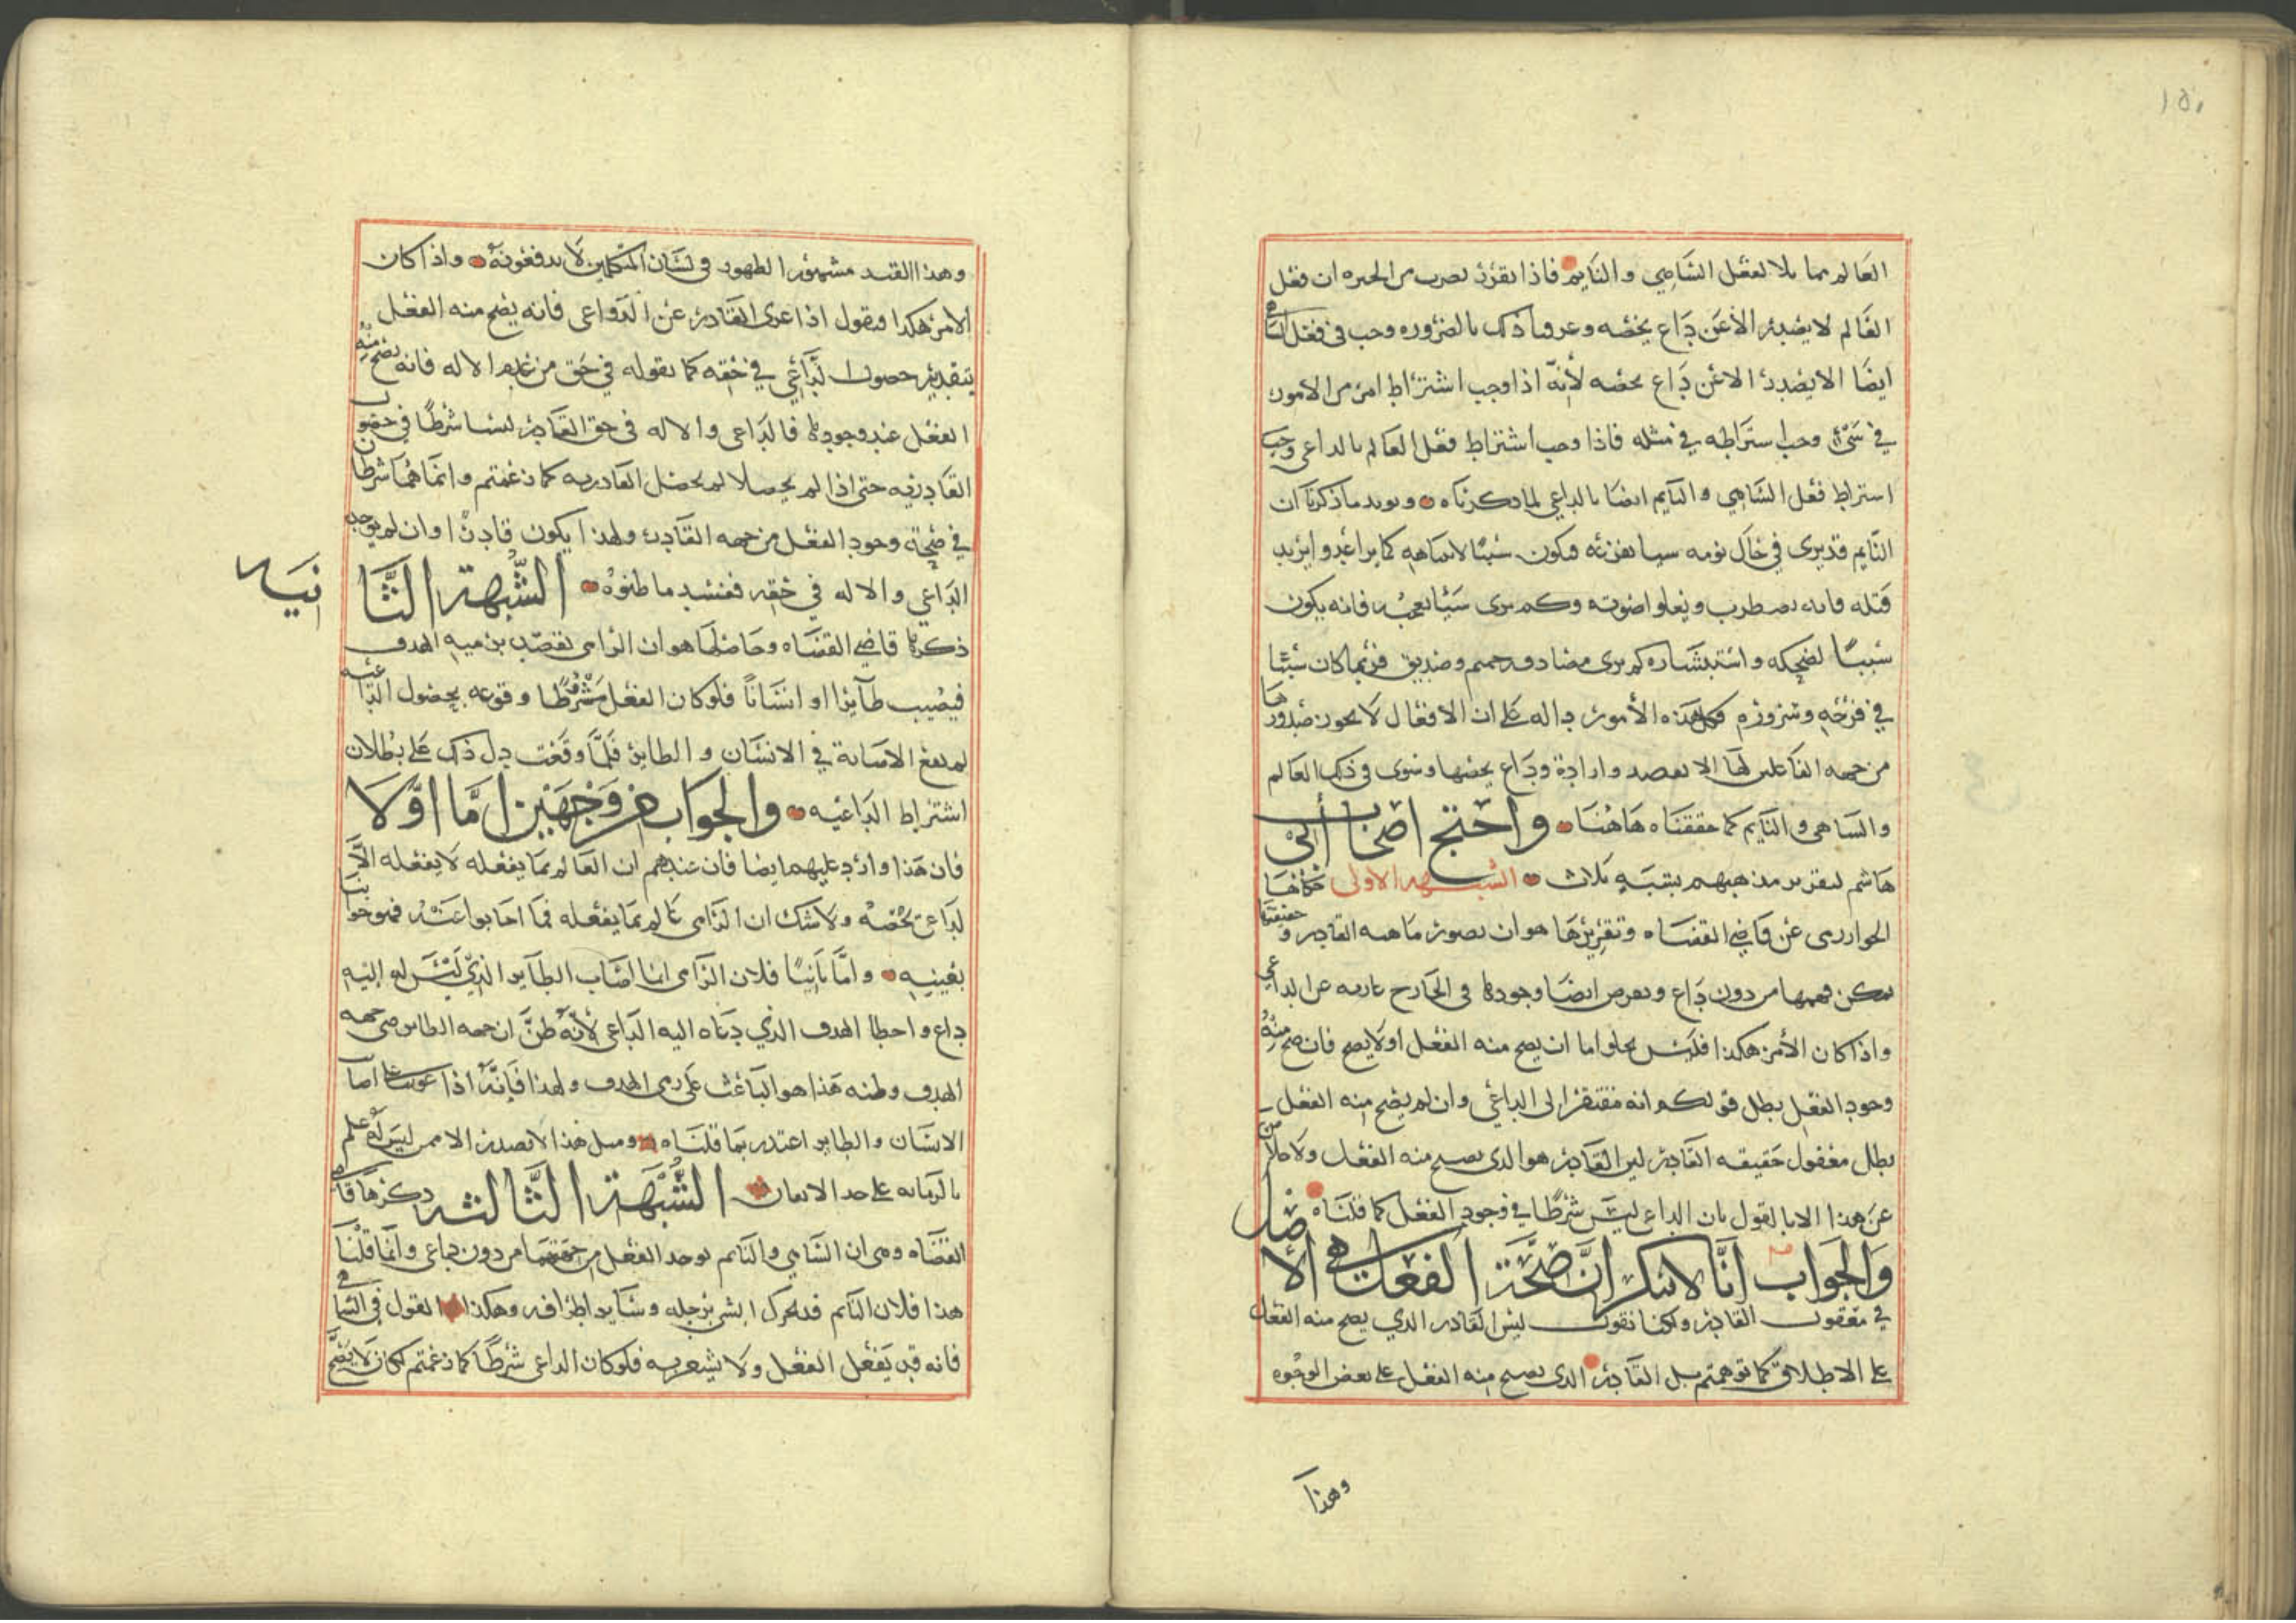 ١٥٠
العالم مماثلا لفعل الساهي والنايم فاذا تقرر بضرب من الخبره ان فعل
العالم لا يصدر الا عن داع يخصه وعرفنا ذلك بالضروره وجب في فعل الساهي
ايضا الا يصدر الا عن داع يخصه لأنه اذا وجب اشتراط امر من الامور
في شيء وجب اشتراطه في مثله فاذا وجب اشتراط فعل العالم بالداعي وجب
اشتراط فعل الساهي والنايم ايضا بالداعي لما ذكرناه ويويد ما ذكرنا ان
النايم قد يرى في حال نومه شيا يفزعه فيكون سببًا لانتباهه كما يرا عدوا يريد
قتله فانه يضطرب ويعلو اصوته وكمن يرى شيًا يعجبه فانه يكون
سببًا لضحكه واستبشاره كمن يرى مصادفه حميم وصديق فربما كان سببًا
في فرحه وسروره فكل هذه الأمور داله على ان الافعال لا يجوز صدورها
من جهه الفاعلين لها الا بقصد واراده وداع يخصها وسوى في ذلك العالم
والساهي والنايم كما حققناه هاهنا واحتج اصحاب أبي
هاشم لتقرير مذهبهم بشبه ثلاث الشبهه الاولى حكاها
الخوارزمي عن قاضي القضاه وتقريرها هو ان تصور ماهيه القادر وحقيقتها
يمكن فهمها من دون داع ونفرض ايضا وجودها في الخارج عاريه عن الداعي
واذا كان الأمر هكذا فليس يخلو اما ان يصح منه الفعل او لا يصح فان صح منه
وجود الفعل بطل قولكم انه مفتقر الى الداعي وان لم يصح منه الفعل
بطل معقول حقيقه القادر لان القادر هو الذي يصح منه الفعل ولا خلاص
عن هذا الا بالقول بان الداع ليس شرطا في وجود الفعل كما قلناه
والجواب أنا لا ننكر ان صحة الفعل هي الاصل
في معقول القادر ولكنا نقول ليس القادر الذي يصح منه الفعل
على الاطلاق كما توهمتم بل القادر الذي يصح منه الفعل على بعض الوجوه
وهذا
وهذا القيد مشهور الظهور في لسان المتكلمين لا يدفعونه واذا كان
الامر هكذا فيقول اذا عرى القادر عن الدواعي فانه يصح منه الفعل
بتقدير حصول الداعي في حقه كما نقوله في حق من عدم الاله فانه يصح منه
الفعل عند وجودها فالداعي والاله في حق القادر ليسا شرطا في حصول
القادريه حتى اذا لم يحصلا لم تحصل القادريه كما زعمتم وانما هما شرطان
في صحة وجود الفعل من جهه القادر ولهذا يكون قادرا وان لم يوجد
الداعي والاله في حقه ففسد ما ظنوه الشبهة الثانيه
ذكرها قاضي القضاه وحاصلها هو ان الرامي يقصد برميه الهدف
فيصيب طآيرا او انسانًا فلو كان الفعل مشروطا وقوعه بحصول الداعيه
لم تقع الاصابة في الانسان والطاير فلما وقعت دل ذلك على بطلان
اشتراط الداعيه والجواب من وجهين اما اولا
فان هذا وارد عليهم ايضا فان عندهم ان العالم بما يفعله لا يفعله الا
لداع يخصه ولا شك ان الرامي عالم بما يفعله فما اجابوا عنه فهو جوابنا
بعينه واما ثانيًا فلان الرامي انما اصاب الطاير الذي ليس له اليه
داع واخطا الهدف الذي دعاه اليه الداعي لأنه ظن ان جهه الطاير هي جهه
الهدف وظنه هذا هو الباعث على رمي الهدف ولهذا فانه اذا عوتب على اصابة
الانسان والطاير اعتذر بما قلناه ومثل هذا لا يصدر الا ممن ليس له علم
بالرمايه على حد الاتقان الشبهة الثالثه ذكرها قاضي
القضاه وهي ان الساهي والنايم يوجد الفعل من جهتهما من دون داعي وانما قلنا
هذا فلان النايم قد يحرك احدى رجله وساير اطرافه وهكذا القول في الساهي
فانه قد يفعل الفعل ولا يشعر به فلو كان الداعي شرطا كما زعمتم لكان لا يصح